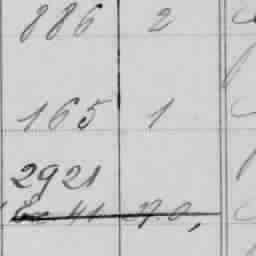 886 2
165 1
2921
41 27.0,